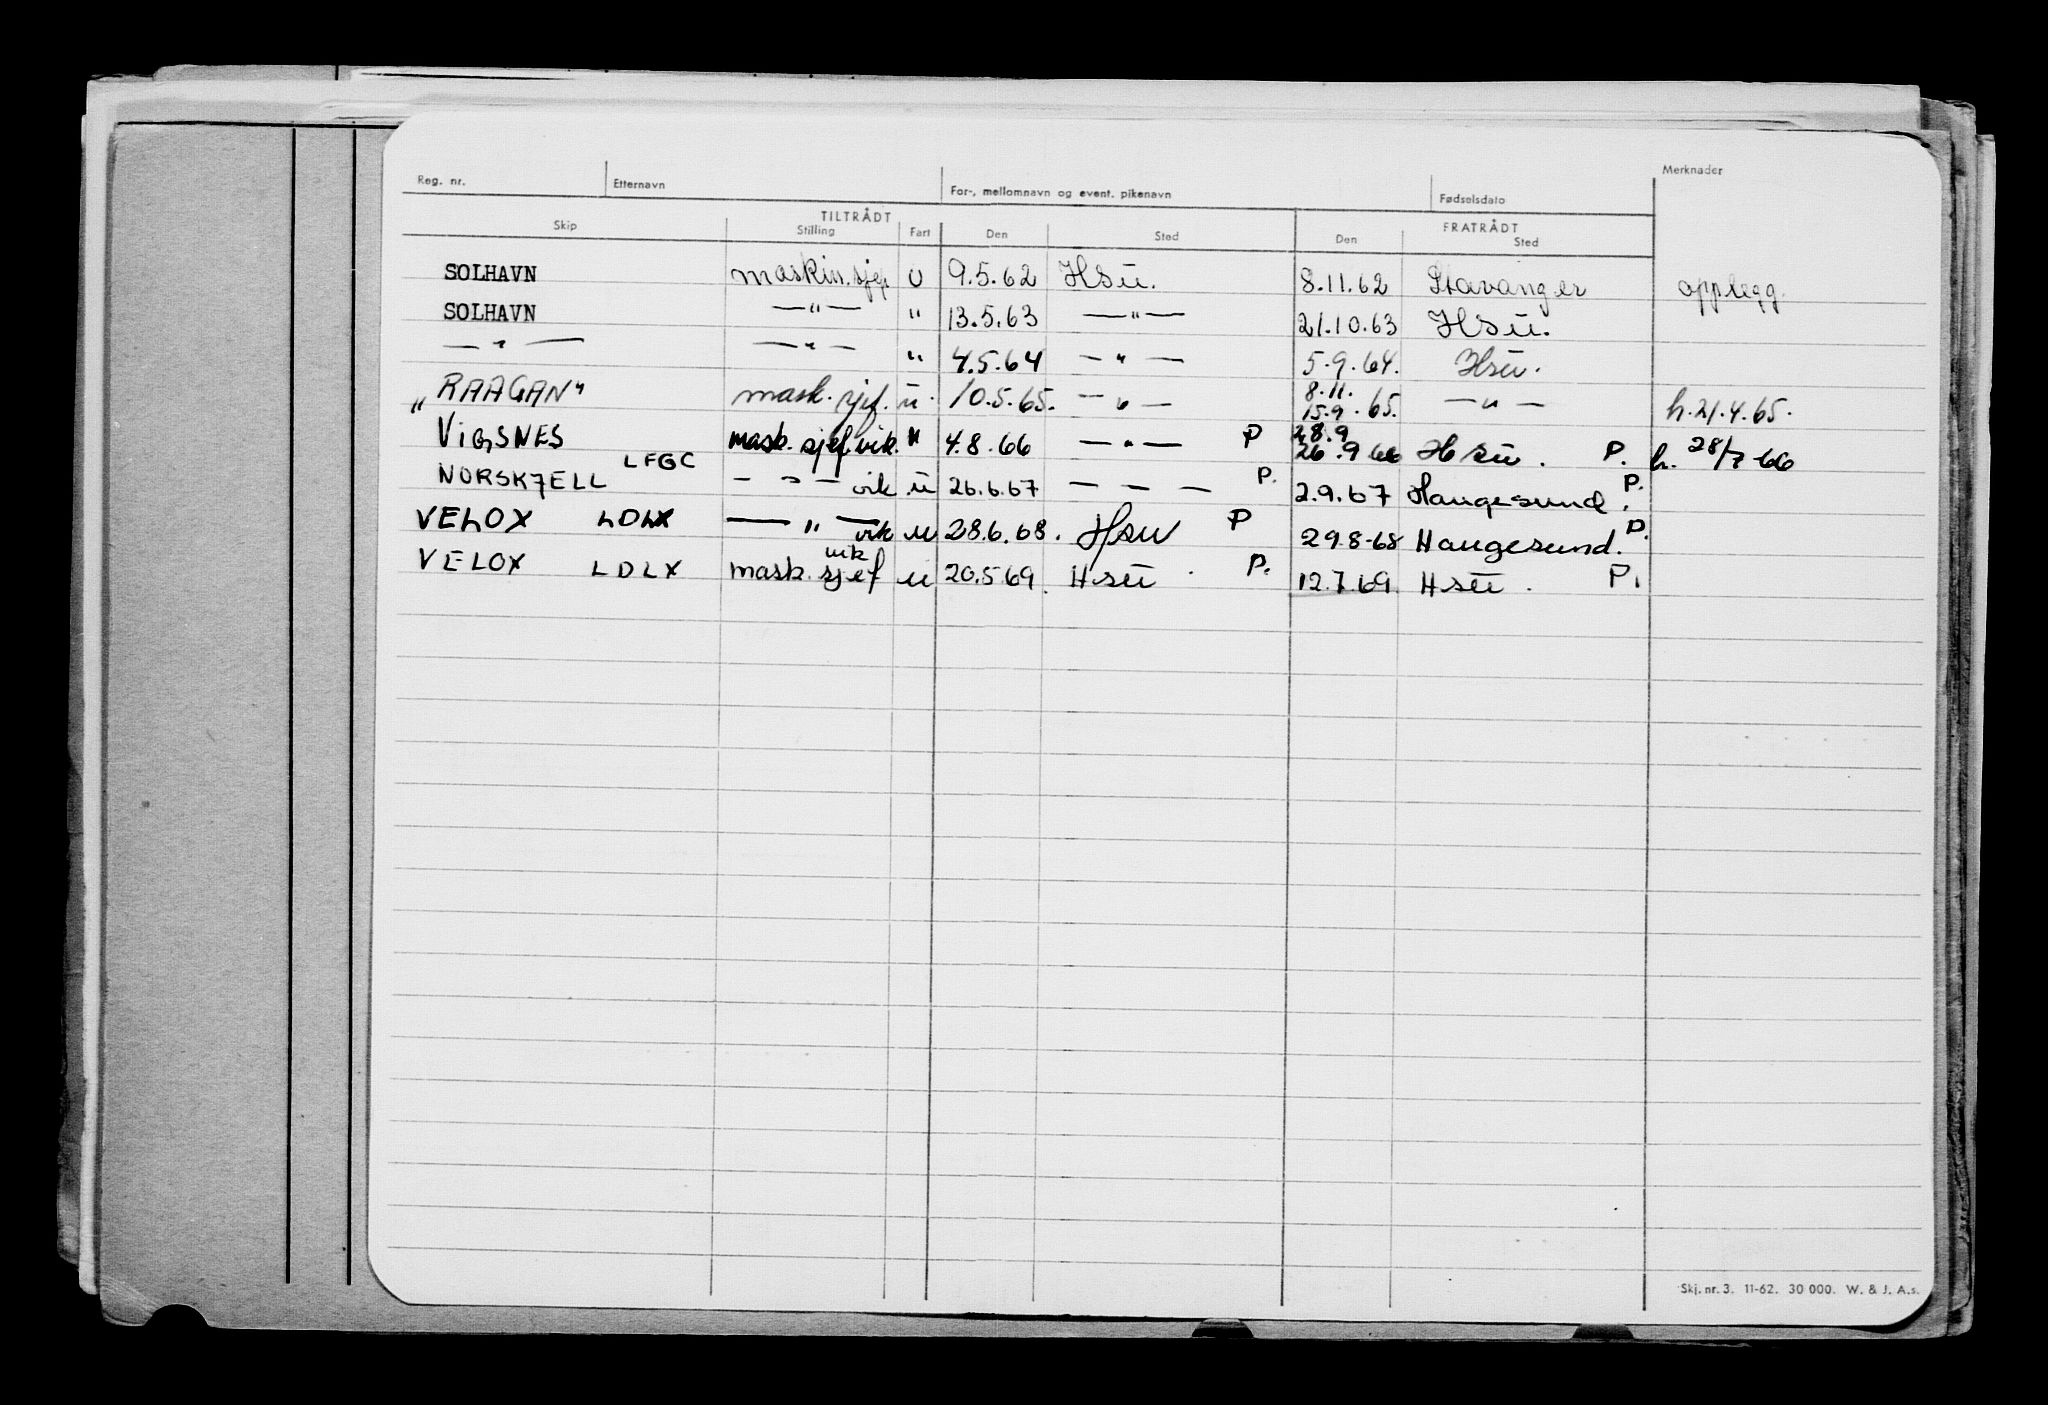 Reg. nr. Etternavn For-, mellomnavn og event. pikenavn Fødselsdato Merknader
TILTRÅDT FRATRÅDT
Skip Stilling Fart Den Sted Den Sted
SOLHAVN maskin.sjef U 9.5.62 HSu. 8.11.62 Stavanger opplegg.
SOLHAVN —"— " 13.5.63 —"— 21.10.63 HSu.
—"— —"— " 4.5.64 —"— 5.9.64. Hsu.
„RAAGAN" mask. sjef. u. 10.5.65. —"— 8.11. 15.9.65. —"— h.21.4.65.
VIGSNES mask. sjef.vik. " 4.8.66 —"— P 28.9 26.9 66 Hsu. P. h. 28/7-66
NORSKJELL LFGC — " — vik u 26.6.67 — — — P. 2.9.67 Haugesund. P.
VELOX LDLX —"— vik u 28.6.68. Hsu P 29.8-68 Haugesund. P.
VELOX LDLX mask. sjef vik u 20.5 69. Hsu. P. 12.7.69. Hsu. P.
Skj. nr. 3. 11-62. 30 000. W. & J. A.s.